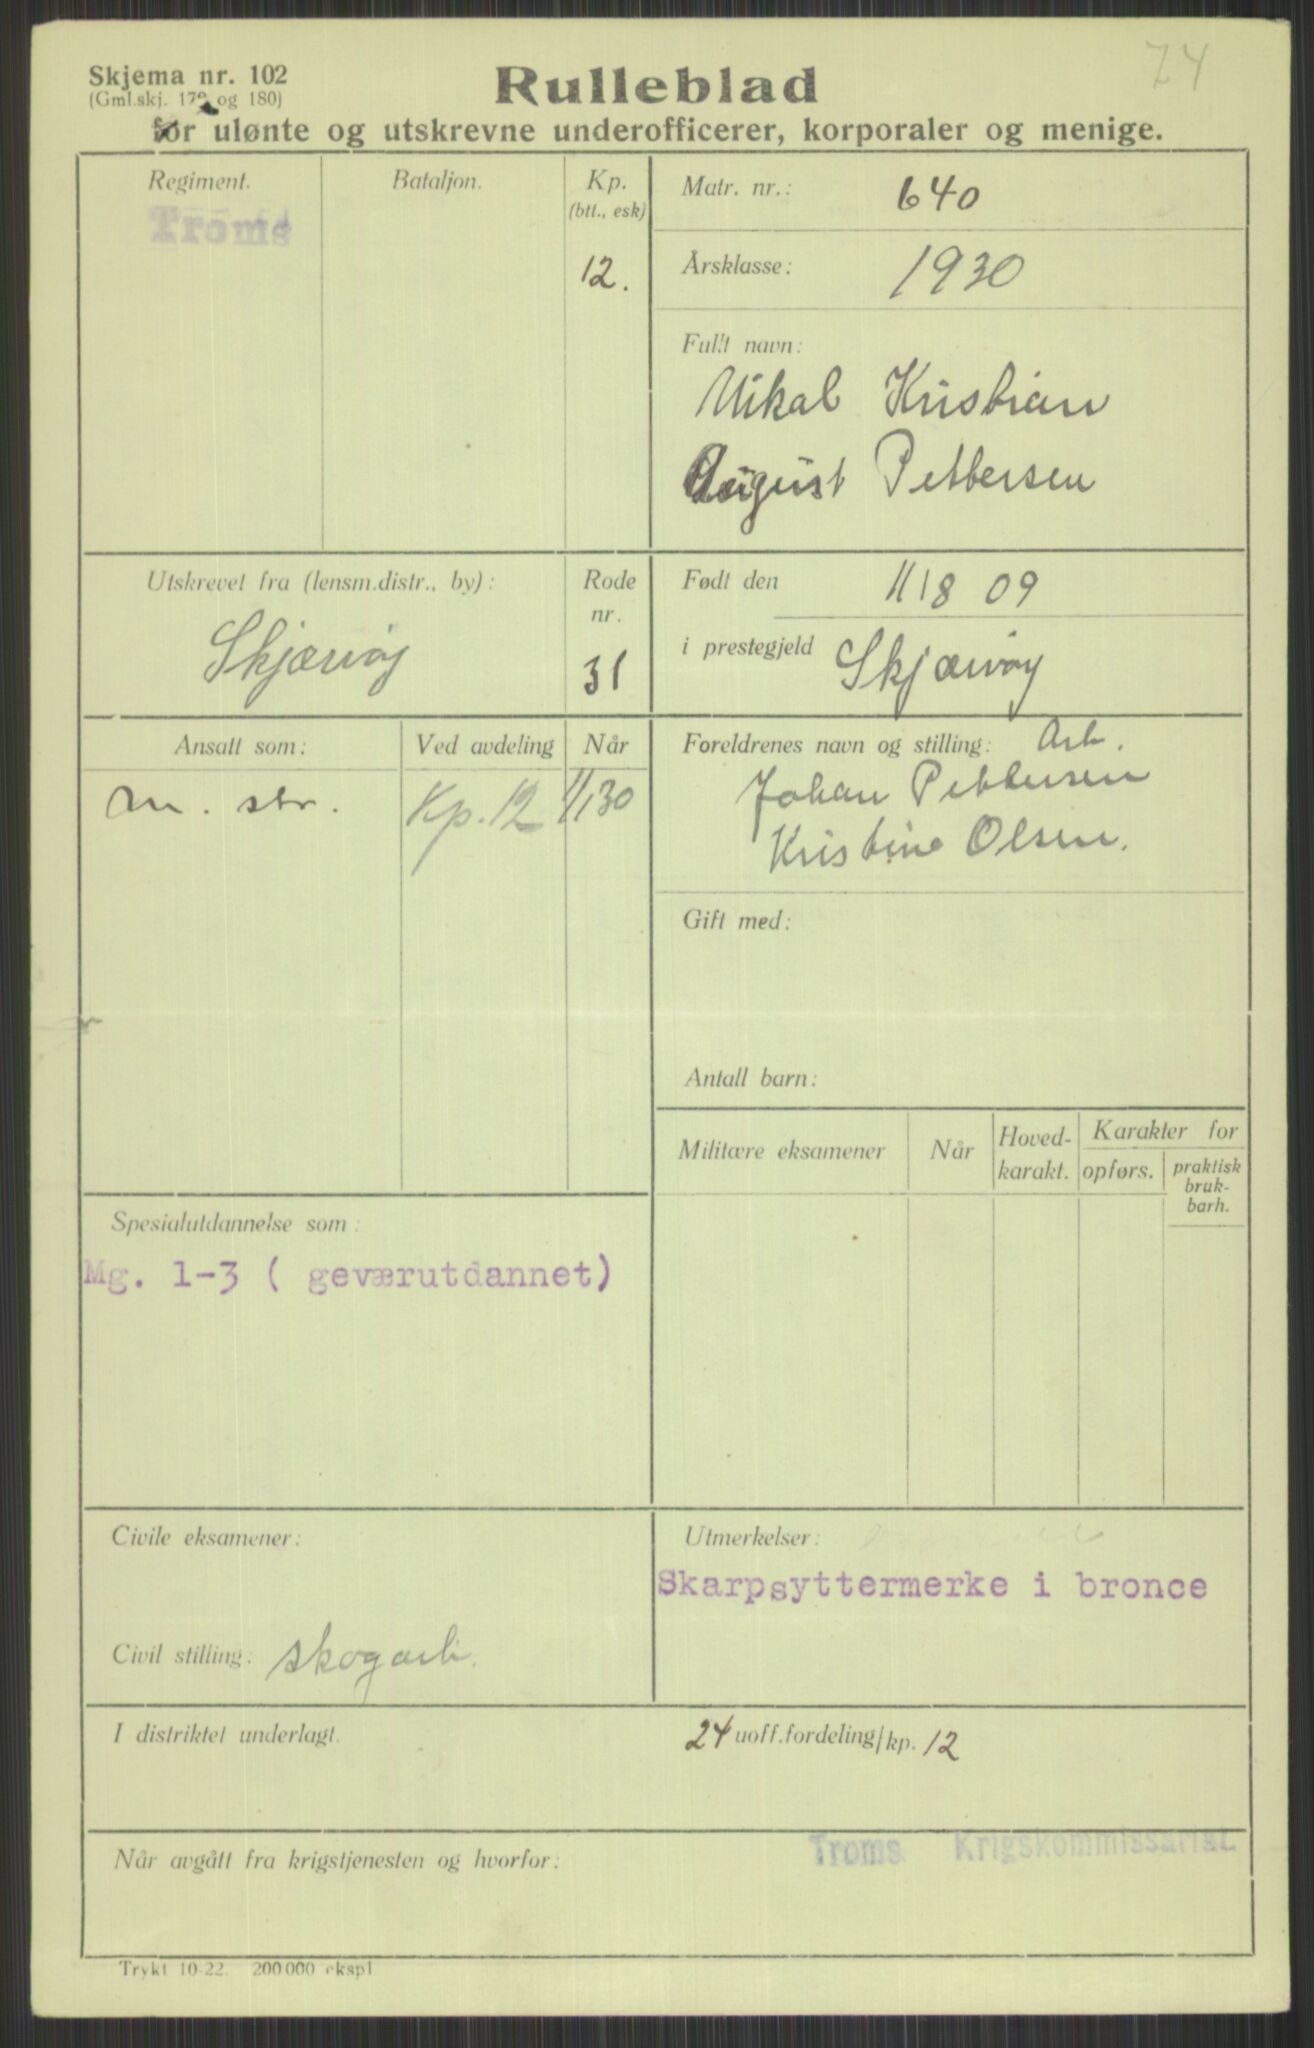 74
Skjema nr. 102
(Gml.skj. 179 og 180)
Rulleblad
for ulønte og utskrevne underofficerer, korporaler og menige.
Regiment.
Troms
Bataljon.
Kp.
(btt., esk)
12.
Matr. nr.: 640
Årsklasse: 1930
Fullt navn:
Mikal Kristian
August Pettersen
Utskrevet fra (lensm.distr., by):
Skjærvøy
Rode
nr.
31
Født den 11/8 09
i prestegjeld Skjærvøy
Ansatt som:
Ved avdeling
Når
m. str.
Kp. 12
1/1 30
Foreldrenes navn og stilling: Arb.
Johan Pettersen
Kristine Olsen.
Gift med:
Antall barn:
Militære eksamener
Når
Hoved-
karakt.
Karakter for
opførs.
praktisk
bruk-
barh.
Spesialutdannelse som:
Mg. 1-3 ( geværutdannet)
Civile eksamener:
Civil stilling: skogarb.
Utmerkelser:
Skarpsyttermerke i bronce
I distriktet underlagt.
24 uoff.fordeling/kp. 12
Når avgått fra krigstjenesten og hvorfor:
Troms Krigskommissariat
Trykt 10-22. 200 000 ekspl